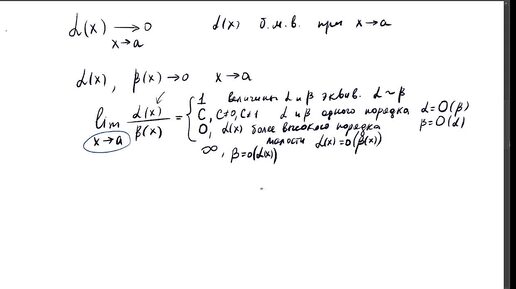 α(x) → 0 x→a α(x) б.м.в. при x→a
α(x), β(x)→0 x→a
lim x→a α(x)/β(x) = { 1 величины α и β эквив. α~β
C, C≠0, C≠1 α и β одного порядка α=O(β) β=O(α)
0, α(x) более высокого порядка
малости α(x)=o(β(x))
∞, β=o(α(x))